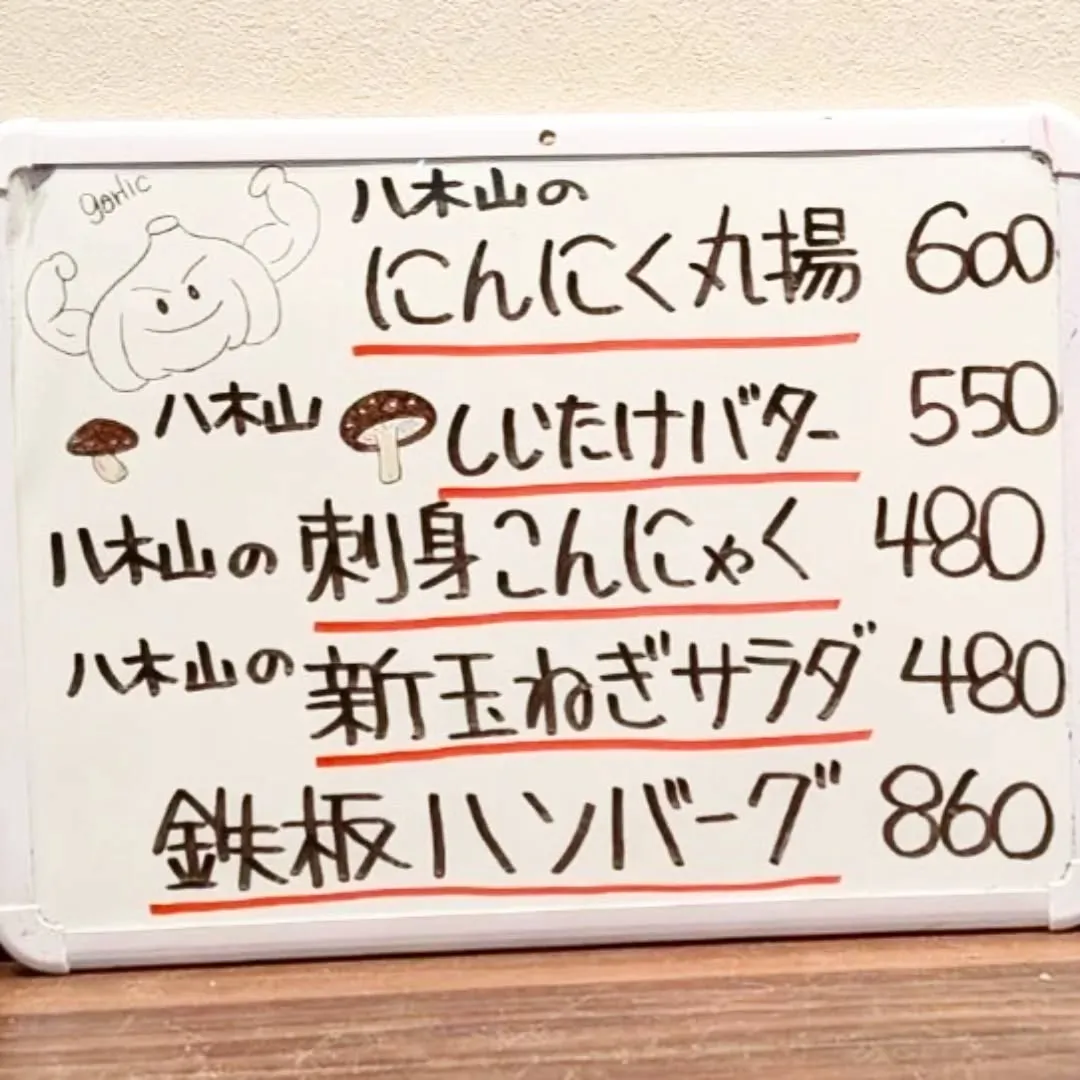 garlic
八木山の
にんにく丸揚 600
八木山 しいたけバター 550
八木山の 刺身こんにゃく 480
八木山の 新玉ねぎサラダ 480
鉄板ハンバーグ 860